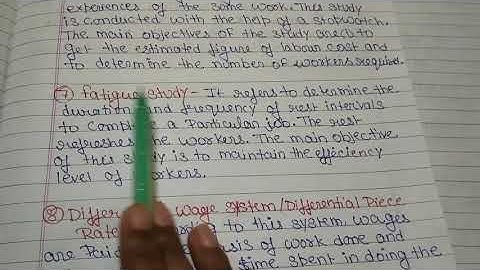 experiences of the same work. This study
is conducted with the help of a stopwatch.
The main objectives of the study are to
get the estimated figure of labour cost and
to determine the number of workers required.
⑦ Fatigue study - It refers to determine the
duration and frequency of rest intervals
to complete a particular job. The rest
refreshes the workers. The main objective
of this study is to maintain the efficiency
level of workers.
⑧ Differ Wage system/Differential Piece
Rate to this system, wages
are of work done and
time spent in doing the